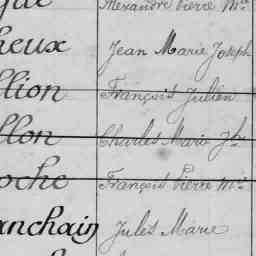 Alexandre Pierre Mie
heux Jean Marie Joseph
llion François Julien
llon Charles Marie Jh
oche François Pierre Mie
anchain Jules Marie